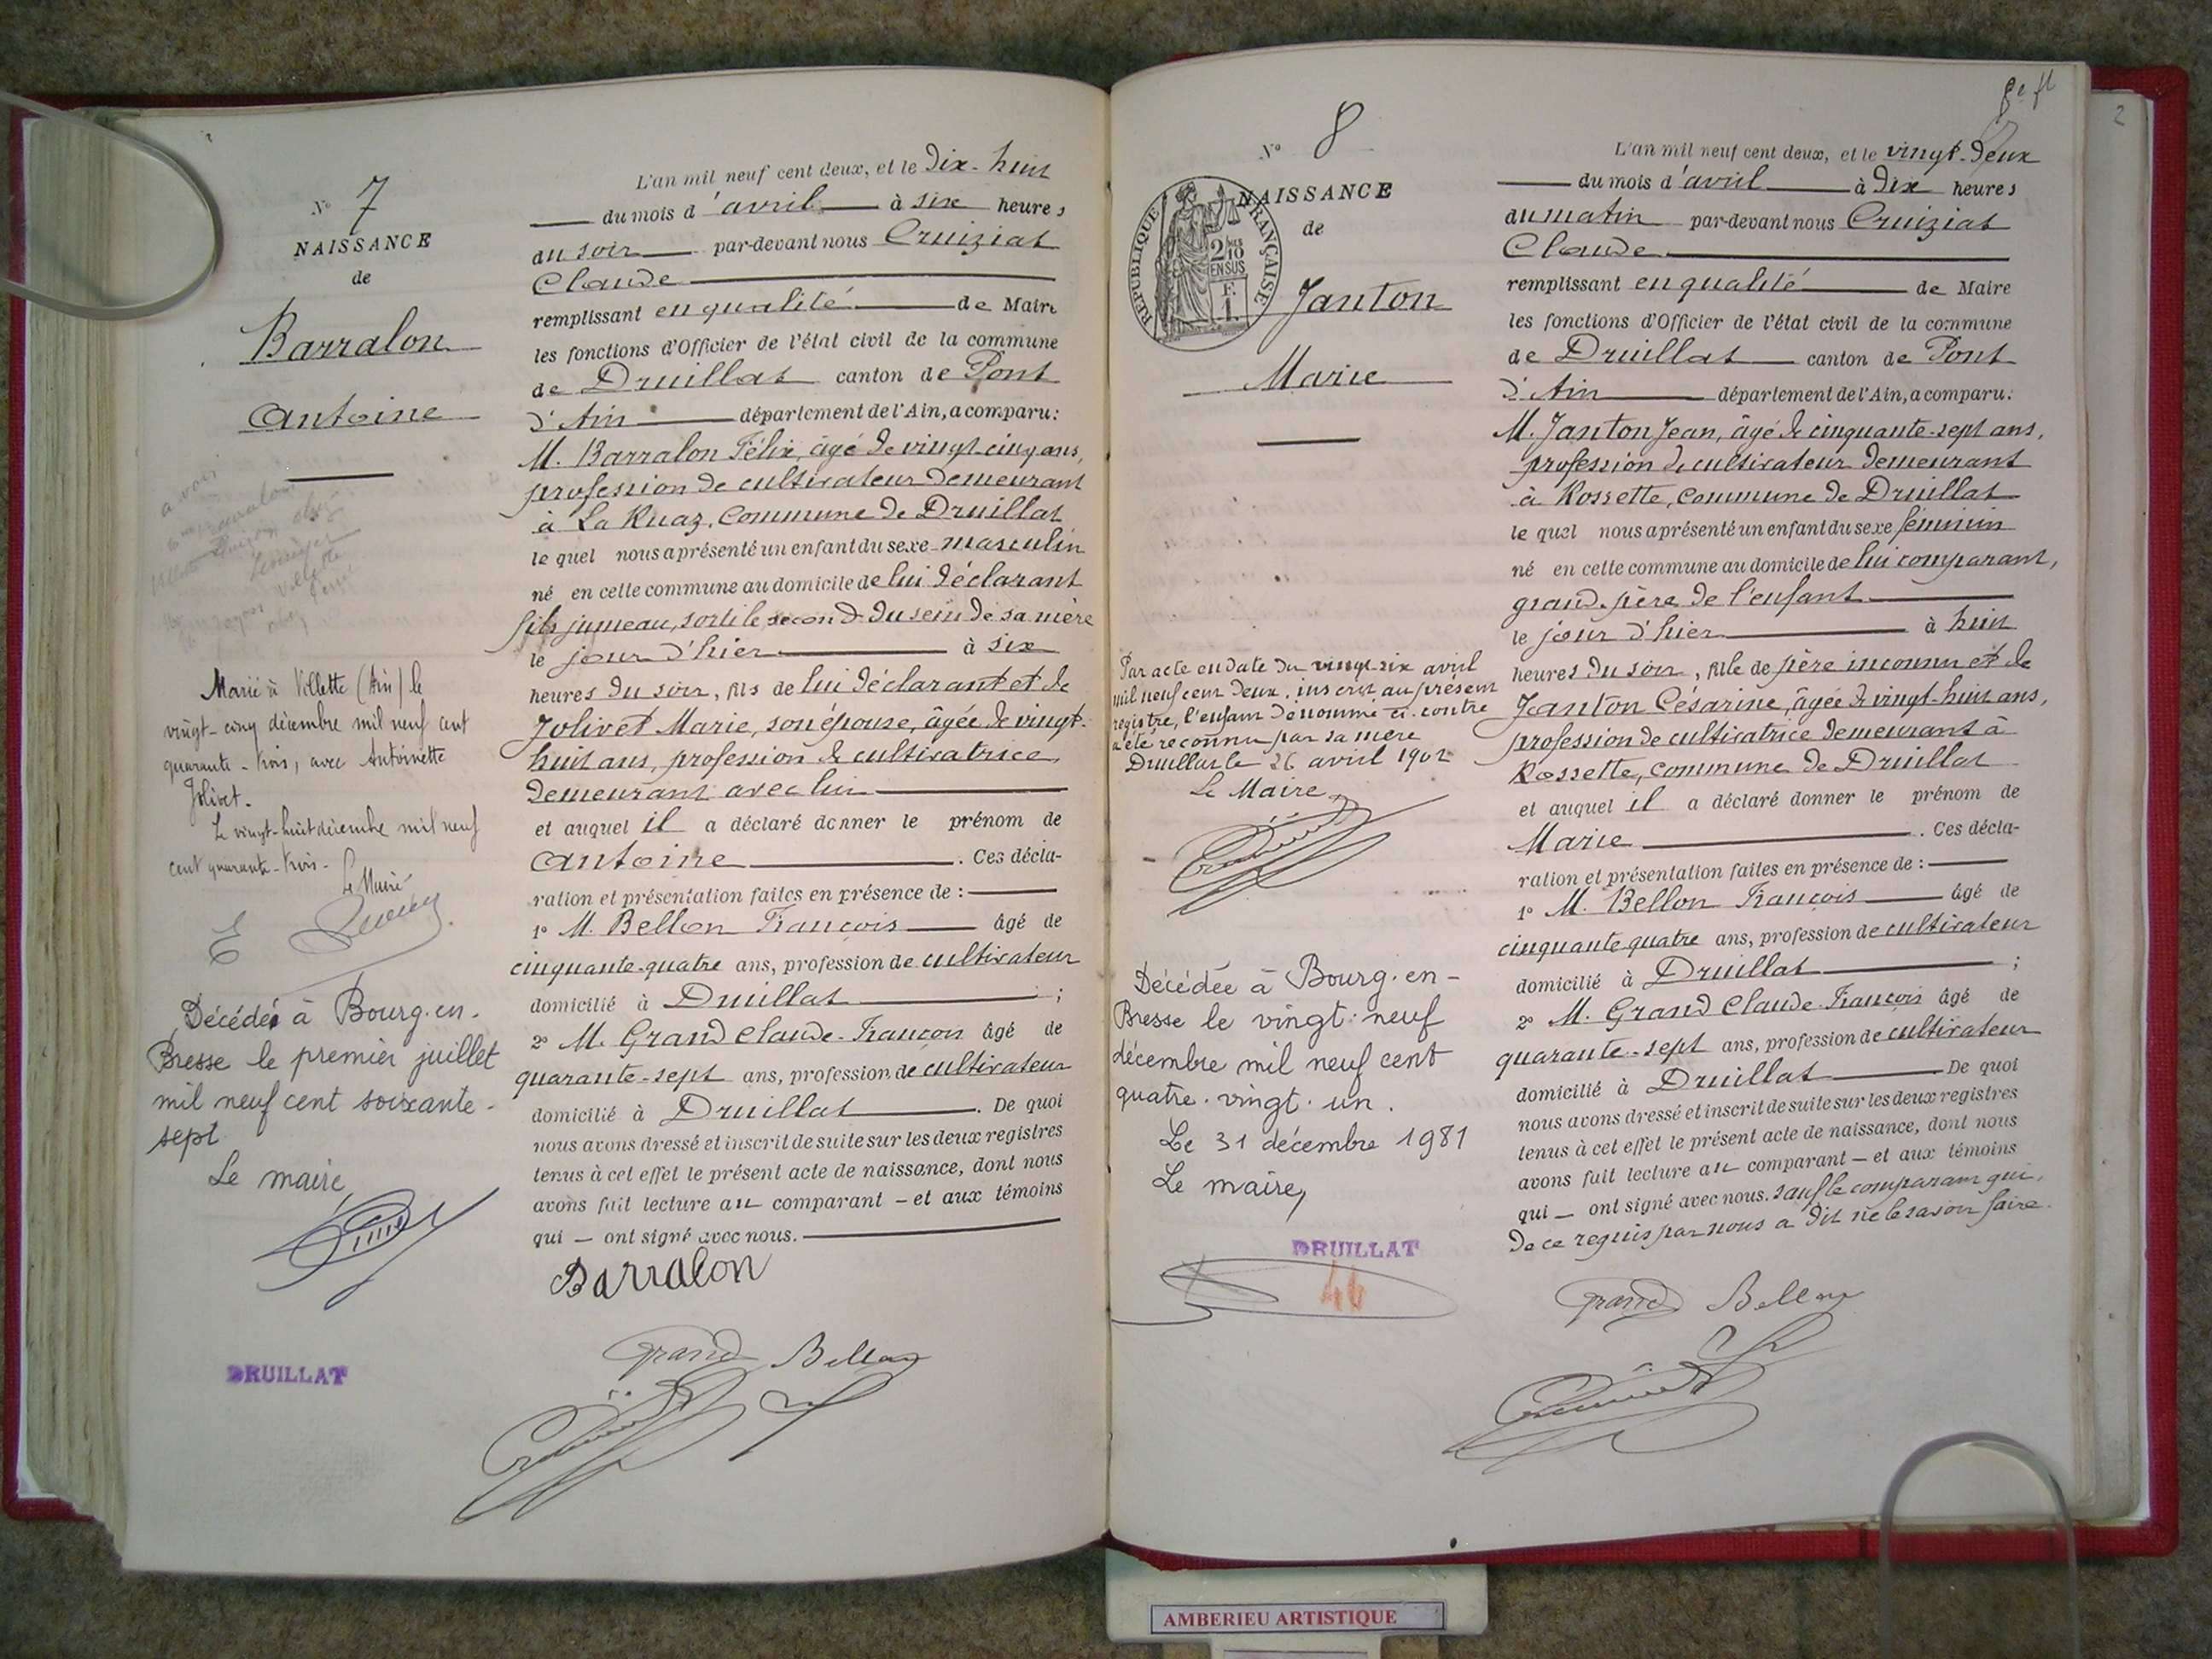 N° 7
NAISSANCE
de
Barralon
Antoine
a voir
Marié à Villette (Ain) le
vingt-cinq décembre mil neuf cent
quarante-trois, avec Antoinette
Jolivet.
Le vingt-huit décembre mil neuf
cent quarante-trois.
Le Maire
Décédé à Bourg-en-
Bresse le premier juillet
mil neuf cent soixante-
sept
Le maire
DRUILLAT
L'an mil neuf cent deux, et le dix-huit
du mois d'avril à six heures
du soir par-devant nous Cruiziat
Claude
remplissant en qualité de Maire
les fonctions d'Officier de l'état civil de la commune
de Druillat canton de Pont
d'Ain département de l'Ain, a comparu:
M. Barralon Félix, âgé de vingt-cinq ans,
profession de cultivateur demeurant
à La Ruaz, commune de Druillat
le quel nous a présenté un enfant du sexe masculin
né en cette commune au domicile de lui déclarant
fils jumeau, sorti le second du sein de sa mère
le jour d'hier à six
heures du soir, fils de lui déclarant et de
Jolivet Marie, son épouse, âgée de vingt-
huit ans, profession de cultivatrice,
demeurant avec lui
et auquel il a déclaré donner le prénom de
Antoine. Ces décla-
ration et présentation faites en présence de :
1° M. Bellon François âgé de
cinquante-quatre ans, profession de cultivateur
domicilié à Druillat ;
2° M. Grand Claude-François âgé de
quarante-sept ans, profession de cultivateur
domicilié à Druillat. De quoi
nous avons dressé et inscrit de suite sur les deux registres
tenus à cet effet le présent acte de naissance, dont nous
avons fait lecture au comparant — et aux témoins
qui — ont signé avec nous.
Barralon
Grand Bellon
N° 8
NAISSANCE
de
RÉPUBLIQUE FRANÇAISE
2/10 EN SUS
F. 1.
Janton
Marie
Par acte en date du vingt-six avril
mil neuf cent deux, inscrit au présent
registre, l'enfant dénommé ci-contre
a été reconnu par sa mère
Druillat le 26 avril 1902
Le Maire
Décédée à Bourg-en-
Bresse le vingt-neuf
décembre mil neuf cent
quatre-vingt-un.
Le 31 décembre 1981
Le maire,
DRUILLAT
46
2
L'an mil neuf cent deux, et le vingt-deux
du mois d'avril à dix heures
du matin par-devant nous Cruiziat
Claude
remplissant en qualité de Maire
les fonctions d'Officier de l'état civil de la commune
de Druillat canton de Pont
d'Ain département de l'Ain, a comparu:
M. Janton Jean, âgé de cinquante-sept ans,
profession de cultivateur demeurant
à Rossette, commune de Druillat
le quel nous a présenté un enfant du sexe féminin
né en cette commune au domicile de lui comparant,
grand-père de l'enfant
le jour d'hier à huit
heures du soir, fille de père inconnu et de
Janton Césarine, âgée de vingt-huit ans,
profession de cultivatrice demeurant à
Rossette, commune de Druillat
et auquel il a déclaré donner le prénom de
Marie. Ces décla-
ration et présentation faites en présence de :
1° M. Bellon François âgé de
cinquante-quatre ans, profession de cultivateur
domicilié à Druillat ;
2° M. Grand Claude-François âgé de
quarante-sept ans, profession de cultivateur
domicilié à Druillat De quoi
nous avons dressé et inscrit de suite sur les deux registres
tenus à cet effet le présent acte de naissance, dont nous
avons fait lecture au comparant — et aux témoins
qui — ont signé avec nous. sauf le comparant qui,
de ce requis par nous a dit ne le savoir faire.
Grand Bellon
AMBERIEU ARTISTIQUE